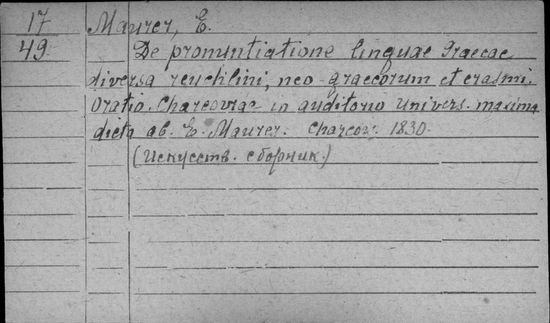 17
49
Maurer, E.
De pronuntiatione linguae Graecae
diversa reuchlini, neo-graecorum et erasmi.
Oratio. Charcoviae in auditorio univers. maxima
dicta ab. E. Maurer. Charcov. 1830.
(Искусств. сборник.)